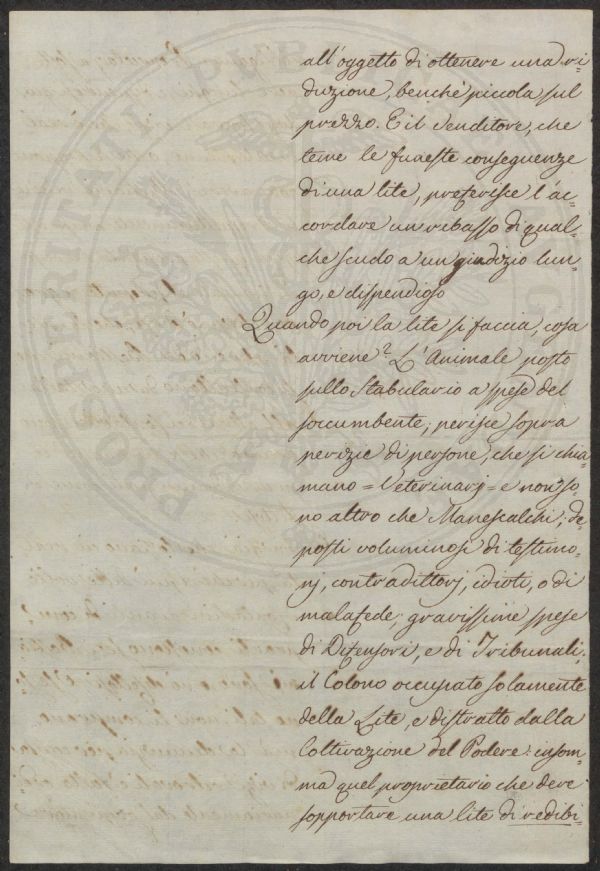 all'oggetto di ottenere una ri-
duzione, benchè piccola sul
prezzo. E il Venditore, che
teme le funeste conseguenze
di una lite, preferisce l'ac-
cordare un ribasso di qual-
che scudo a un giudizio lun-
go, e dispendioso
Quando poi la lite si faccia, cosa
avviene? L'Animale posto
sullo Stabulario a spese del
soccumbente; perizie sopra
perizie di persone, che si chia-
mano = Veterinarj = e non so-
no altro che Manescalchi; de-
posti voluminosi di testimo-
nj, contradittorj, idioti, o di
malafede; gravissime spese
di Difensori, e di Tribunali;
il Colono occupato solamente
della Lite, e distratto dalla
Coltivazione del Podere: insom-
ma quel proprietario che deve
sopportare una lite di redibi-